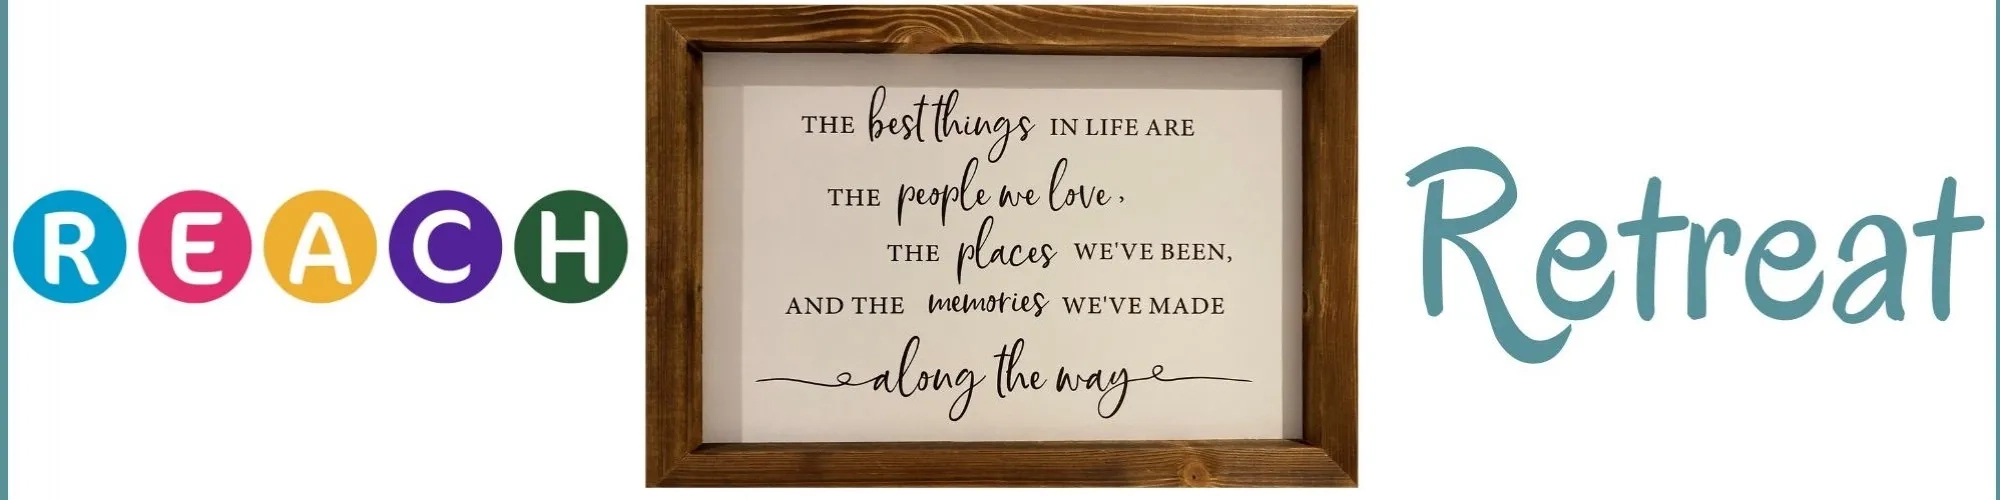 REACH
THE best things IN LIFE ARE
THE people we love,
THE places WE'VE BEEN,
AND THE memories WE'VE MADE
along the way
Retreat